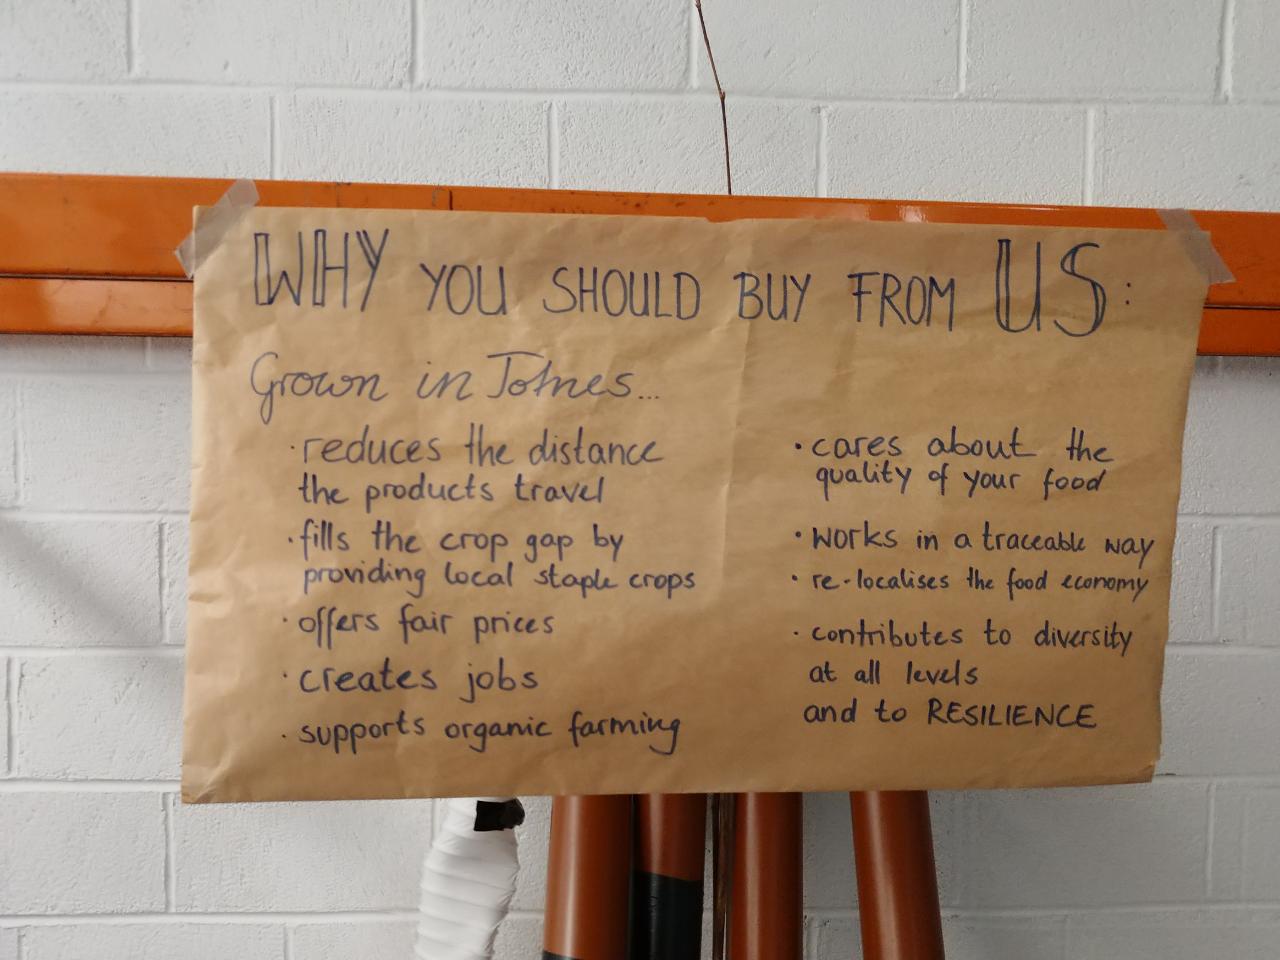 WHY YOU SHOULD BUY FROM US:
Grown in Totnes...
· reduces the distance
the products travel
· fills the crop gap by
providing local staple crops
· offers fair prices
· creates jobs
· supports organic farming
· cares about the
quality of your food
· works in a traceable way
· re-localises the food economy
· contributes to diversity
at all levels
and to RESILIENCE